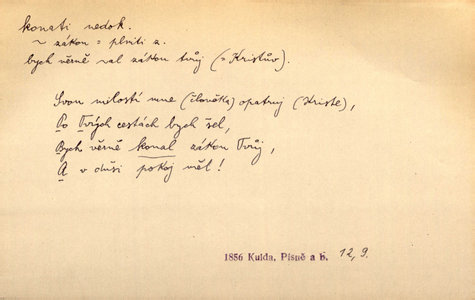 konati nedok.
~ zákon = plniti z.
bych věrně ~al zákon tvůj (= Kristův).
Svou milostí mne (člověka) opatruj (Kriste),
Po Tvých cestách bych šel,
Bych věrně konal zákon Tvůj,
A v duši pokoj měl!
1856 Kulda, Písně a b. 12, 9.